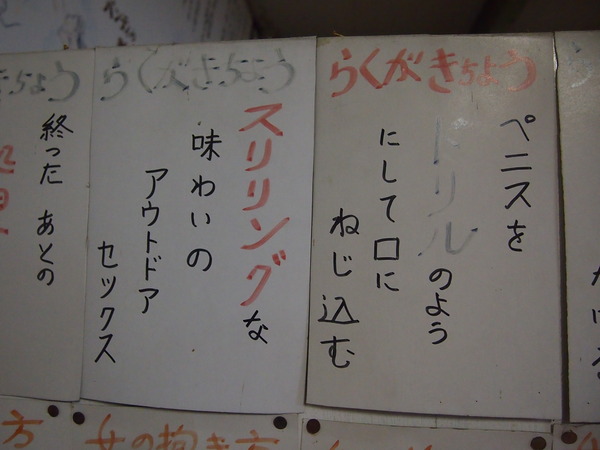 らくがきちょう
ペニスを
ドリルのよう
にして口に
ねじ込む
らくがきちょう
スリリングな
味わいの
アウトドア
セックス
きちょう
終った あとの
女の抱き方
方